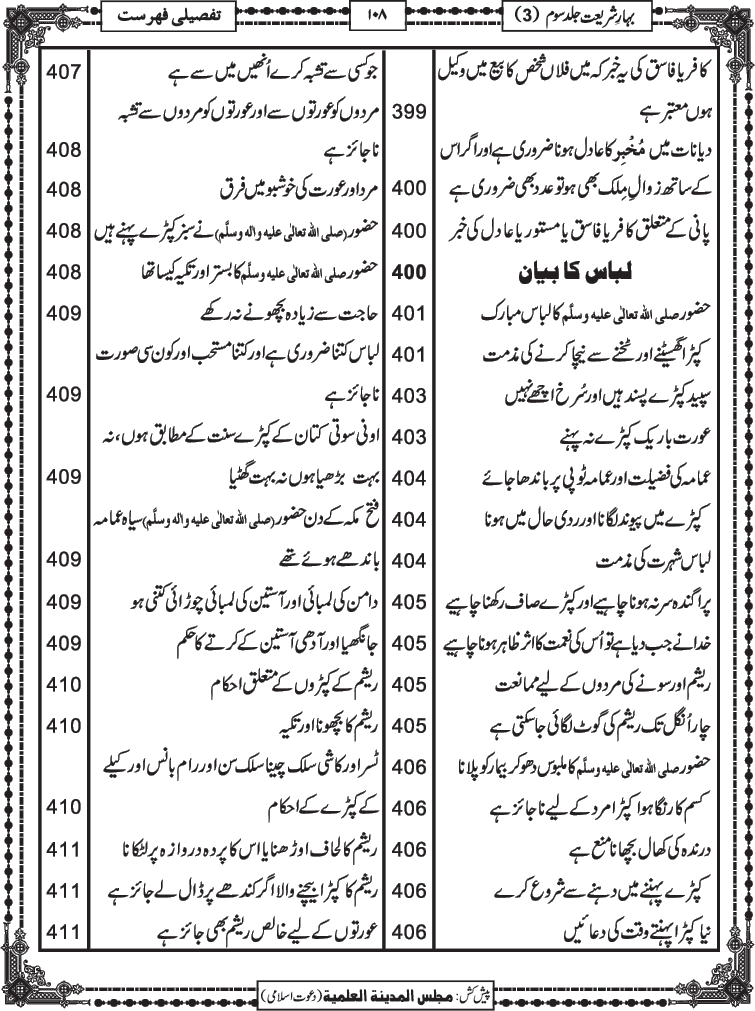 بہارِ شریعت جلد سوم (3)
۱۰۸
تفصیلی فہرست
کافر یا فاسق کی یہ خبر کہ میں فلاں شخص کا بیع میں وکیل
ہوں معتبر ہے 399
دیانات میں مُخبِر کا عادل ہونا ضروری ہے اور اگر اس
کے ساتھ زوالِ مِلک بھی ہو تو عدد بھی ضروری ہے 400
پانی کے متعلق کافر یا فاسق یا مستور یا عادل کی خبر 400
لباس کا بیان 400
حضور صلی اللہ تعالٰی علیہ وسلَّم کا لباس مبارک 401
کپڑا گھسیٹنے اور ٹخنے سے نیچا کرنے کی مذمت 401
سپید کپڑے پسند ہیں اور سُرخ اچھے نہیں 403
عورت باریک کپڑے نہ پہنے 403
عمامہ کی فضیلت اور عمامہ ٹوپی پر باندھا جائے 404
کپڑے میں پیوند لگانا اور ردی حال میں ہونا 404
لباس شہرت کی مذمت 404
پراگندہ سر نہ ہونا چاہیے اور کپڑے صاف رکھنا چاہیے 405
خدا نے جب دیا ہے تو اُس کی نعمت کا اثر ظاہر ہونا چاہیے 405
ریشم اور سونے کی مردوں کے لیے ممانعت 405
چار اُنگل تک ریشم کی گوٹ لگائی جاسکتی ہے 405
حضور صلی اللہ تعالٰی علیہ وسلَّم کا ملبوس دھو کر بیمار کو پلانا 406
کسم کا رنگا ہوا کپڑا مرد کے لیے ناجائز ہے 406
درندہ کی کھال بچھانا منع ہے 406
کپڑے پہننے میں دہنے سے شروع کرے 406
نیا کپڑا پہنتے وقت کی دعائیں 406
جو کسی سے تشبہ کرے اُنھیں میں سے ہے 407
مردوں کو عورتوں سے اور عورتوں کو مردوں سے تشبہ
ناجائز ہے 408
مرد اور عورت کی خوشبو میں فرق 408
حضور (صلی اللہ تعالٰی علیہ والہ وسلَّم) نے سبز کپڑے پہنے ہیں 408
حضور صلی اللہ تعالٰی علیہ وسلَّم کا بستر اور تکیہ کیسا تھا 408
حاجت سے زیادہ بچھونے نہ رکھے 409
لباس کتنا ضروری ہے اور کتنا مستحب اور کون سی صورت
ناجائز ہے 409
اونی سوتی کتان کے کپڑے سنت کے مطابق ہوں، نہ
بہت بڑھیا ہوں نہ بہت گھٹیا 409
فتح مکہ کے دن حضور (صلی اللہ تعالٰی علیہ والہ وسلَّم) سیاہ عمامہ
باندھے ہوئے تھے 409
دامن کی لمبائی اور آستین کی لمبائی چوڑائی کتنی ہو 409
جانگھیا اور آدھی آستین کے کرتے کا حکم 409
ریشم کے کپڑوں کے متعلق احکام 410
ریشم کا بچھونا اور تکیہ 410
ٹسر اور کاشی سلک چینا سلک سن اور رام بانس اور کیلے
کے کپڑے کے احکام 410
ریشم کا لحاف اوڑھنا یا اس کا پردہ دروازہ پر لٹکانا 411
ریشم کا کپڑا بیچنے والا اگر کندھے پر ڈال لے جائز ہے 411
عورتوں کے لیے خالص ریشم بھی جائز ہے 411
پیش کش: مجلس المدینۃ العلمیۃ (دعوت اسلامی)